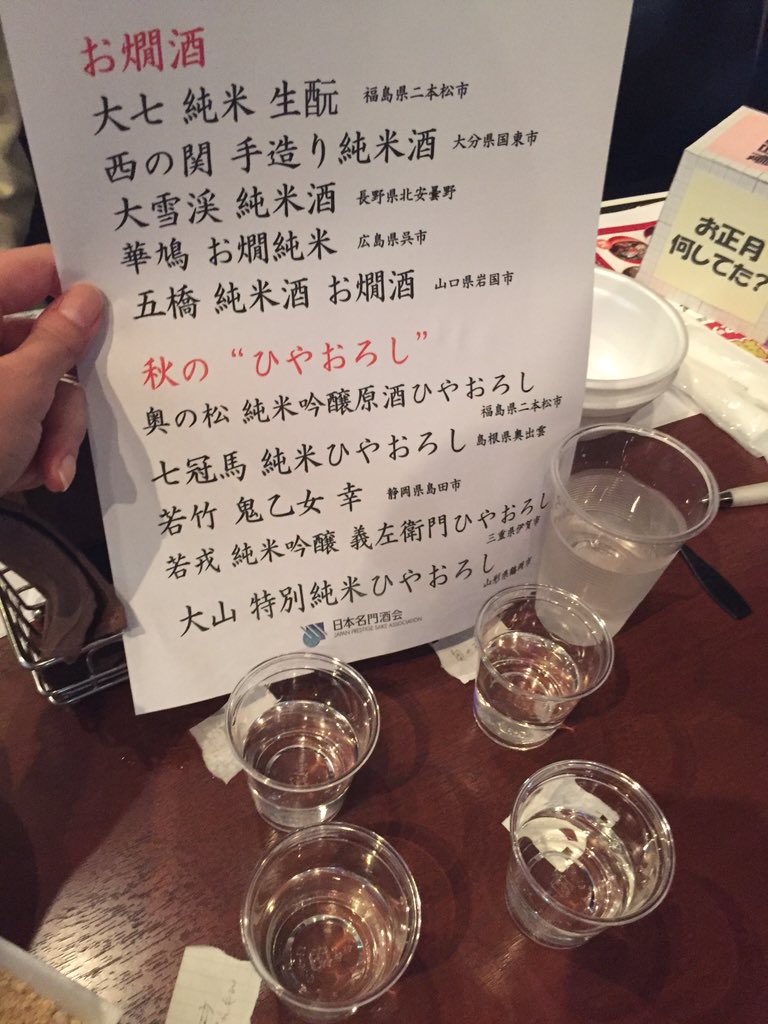 お燗酒
大七 純米 生酛 福島県二本松市
西の関 手造り純米酒 大分県国東市
大雪渓 純米酒 長野県北安曇野
華鳩 お燗純米 広島県呉市
五橋 純米酒 お燗酒 山口県岩国市
秋の “ひやおろし”
奥の松 純米吟醸原酒ひやおろし 福島県二本松市
七冠馬 純米ひやおろし 島根県奥出雲
若竹 鬼乙女 幸 静岡県島田市
若戎 純米吟醸 義左衛門ひやおろし 三重県伊賀市
大山 特別純米ひやおろし 山形県鶴岡市
日本名門酒会
JAPAN PRESTIGE SAKE ASSOCIATION
お正月
何してた?